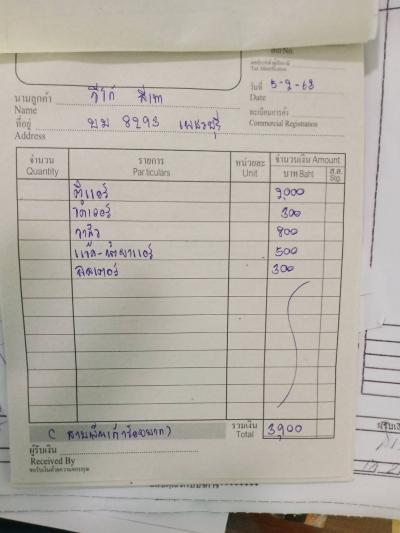 เลขประจำตัวผู้เสียภาษี
Tax Identification
นามลูกค้า วีโก้ สีเทา วันที่ 5-2-63
Name Date
ที่อยู่ บม 8293 เพชรบุรี ทะเบียนการค้า
Address Commercial Registration
จำนวน รายการ หน่วยละ จำนวนเงิน Amount
Quantity Particulars Unit บาท Baht ส.ต. Stg.
ตู้แอร์ 2,000
300
วาล์ว 800
500
300
(สามพันเก้าร้อยบาท) รวมเงิน Total 3,900
ผู้รับเงิน
Received By